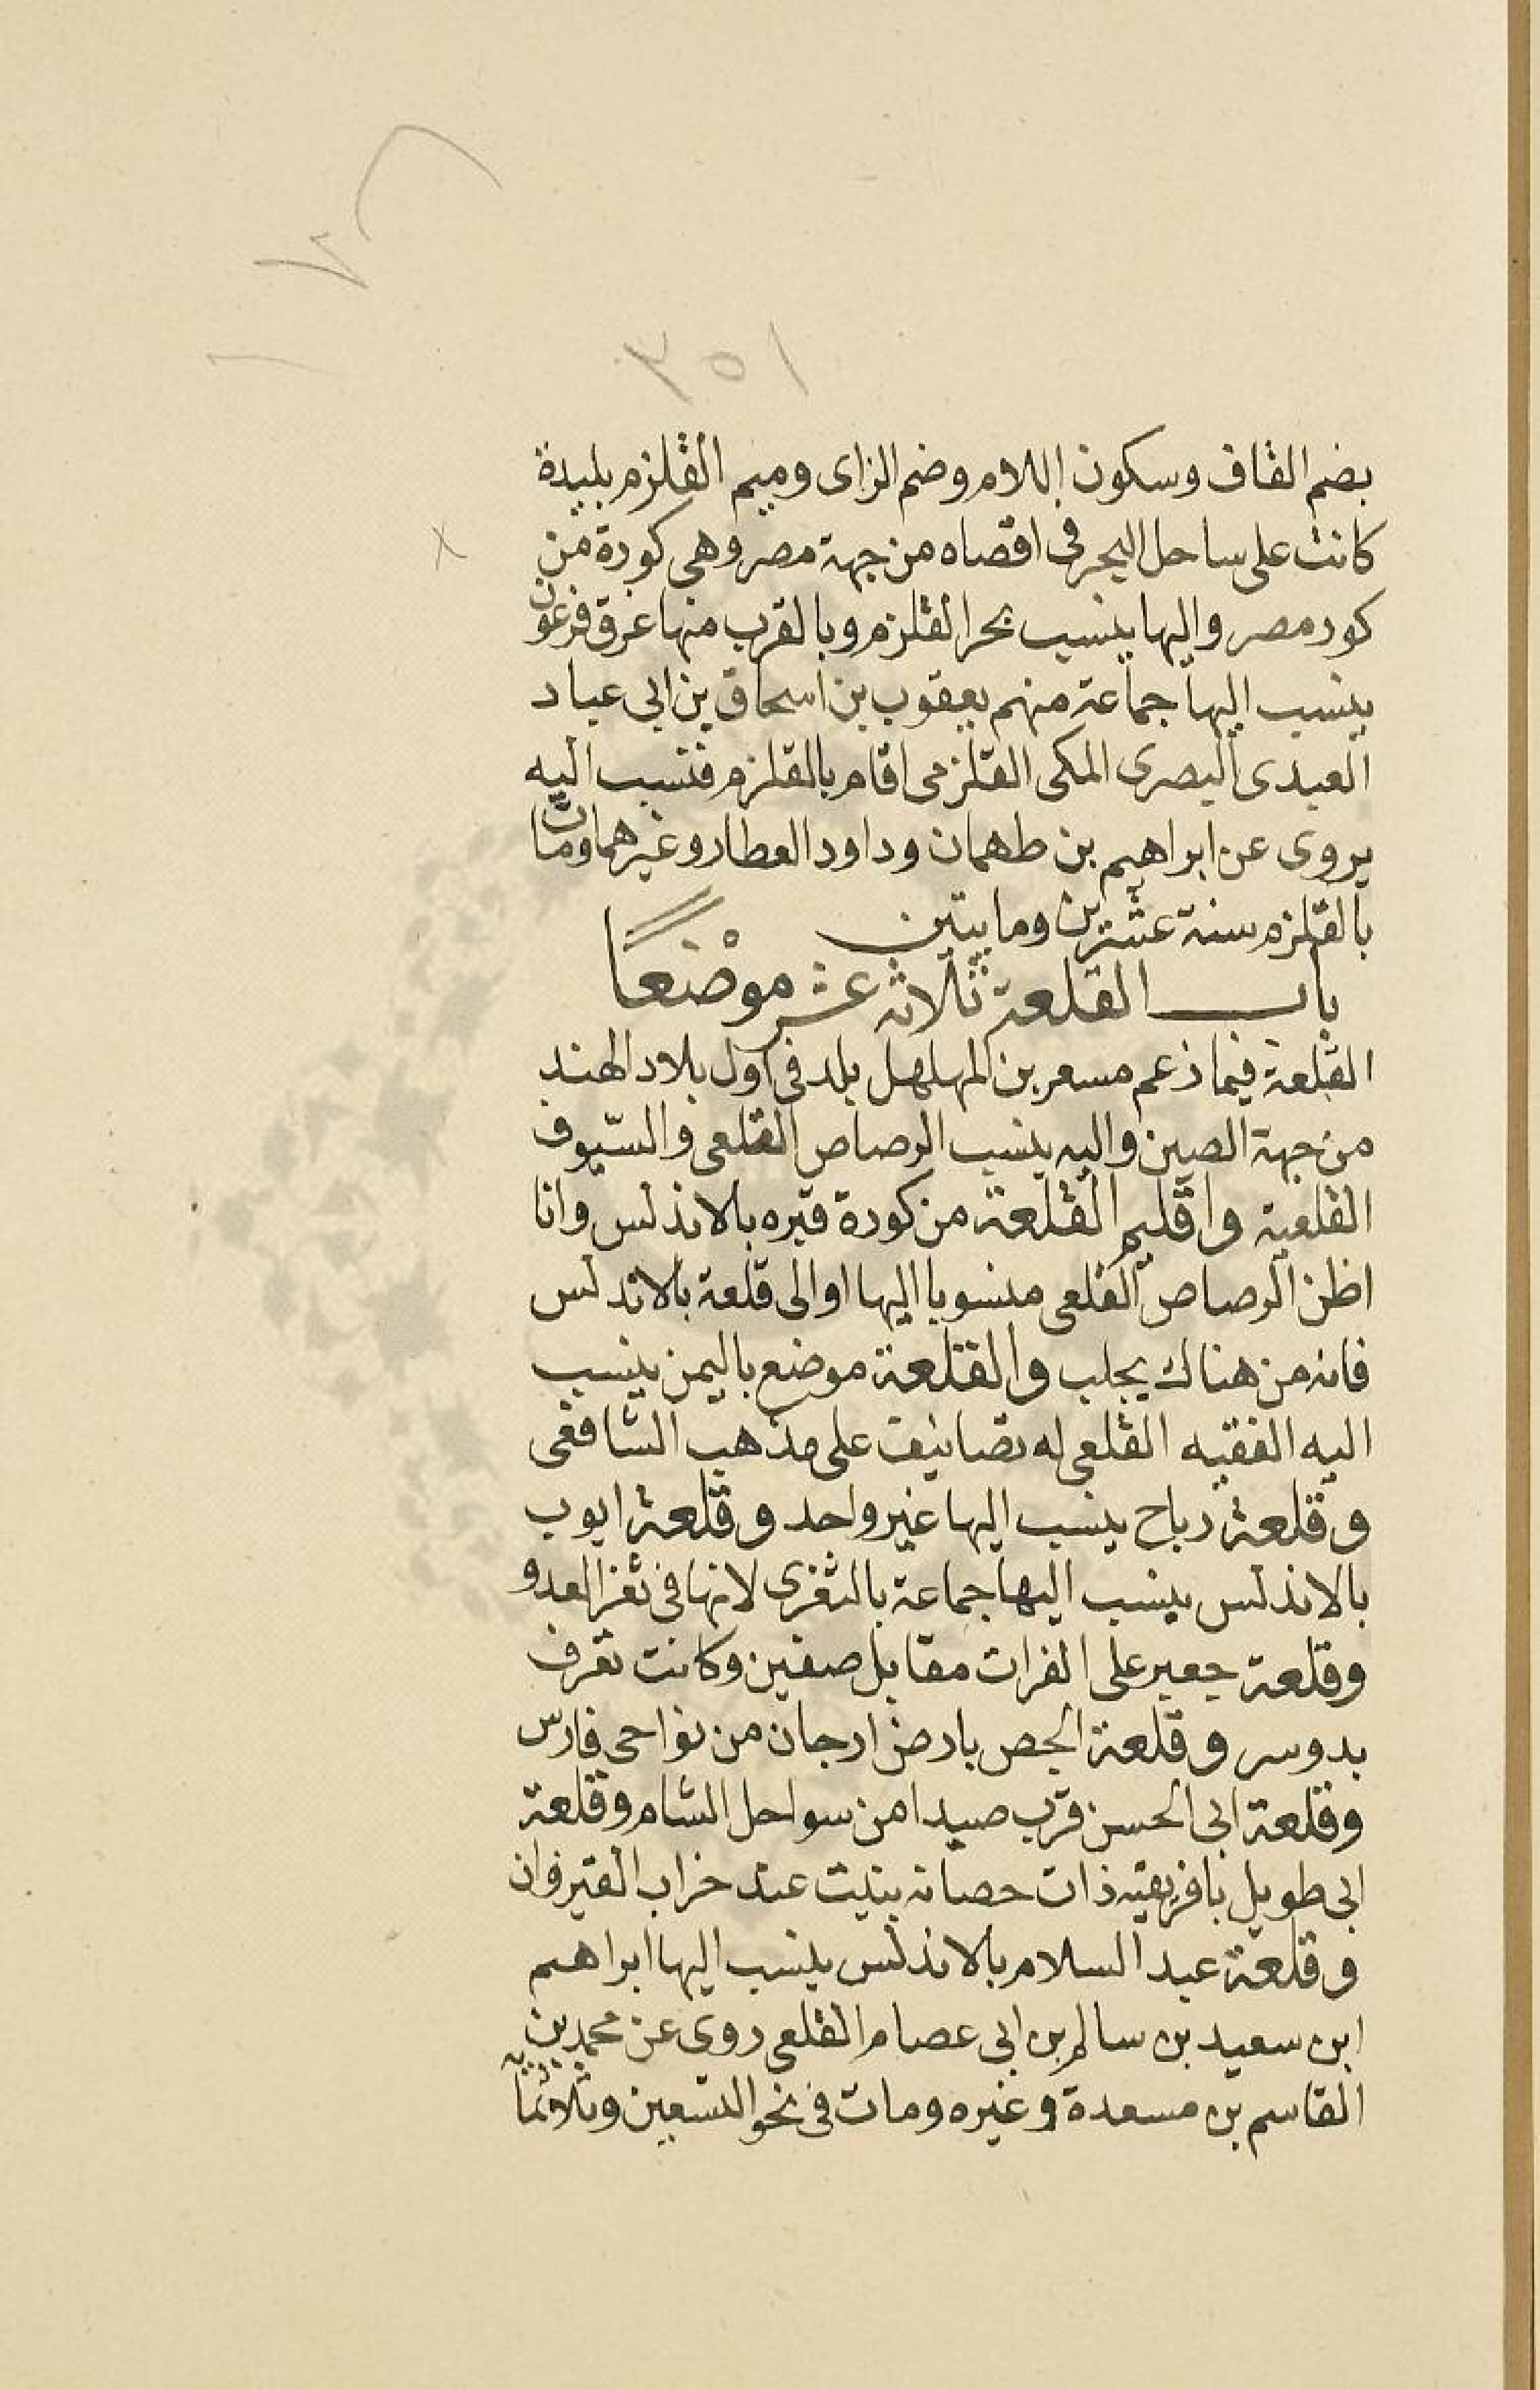 ٣٥١
بضم القاف وسكون اللام وضم الزاى وميم القلزم بليدة
كانت على ساحل البحر فى اقصاه من جهة مصر وهى كورة من
كور مصر واليها ينسب بحر القلزم وبالقرب منها غرق فرعون
ينسب اليها جماعة منهم يعقوب بن اسحاق بن ابى عباد
العبدى البصرى المكى القلزمى اقام بالقلزم فنسب اليه
يروى عن ابراهيم بن طهمان وداود العطار وغيرهما ومات
بالقلزم سنة عشرين ومايتين
باب القلعة ثلاثة عشر موضعًا
القلعة فيما زعم مسعر بن المهلهل بلد فى اول بلاد الهند
من جهة الصين واليه ينسب الرصاص القلعى والسّيوف
القلعية واقليم القلعة من كورة قبره بالاندلس وانا
اظن الرصاص القلعى منسوبا اليها او الى قلعة بالاندلس
فانه من هناك يجلب والقلعة موضع باليمن ينسب
اليه الفقيه القلعى له تصانيف على مذهب الشافعى
وقلعة رباح ينسب اليها غير واحد وقلعة ايوب
بالاندلس ينسب اليها جماعة بالثغرى لانها فى ثغر العدو
وقلعة جعبر على الفرات مقابل صفين وكانت تعرف
بدوسر وقلعة الجص بارض ارجان من نواحى فارس
وقلعة ابى الحسن قرب صيدا من سواحل الشام وقلعة
ابى طويل بافريقيه ذات حصانه بنيت عند خراب القيروان
وقلعة عبد السلام بالاندلس ينسب اليها ابراهيم
ابن سعيد بن سالم بن ابى عصام القلعى روى عن محمد بن
القاسم بن مسعدة وغيره ومات فى نحو التسعين وثلاثمايه